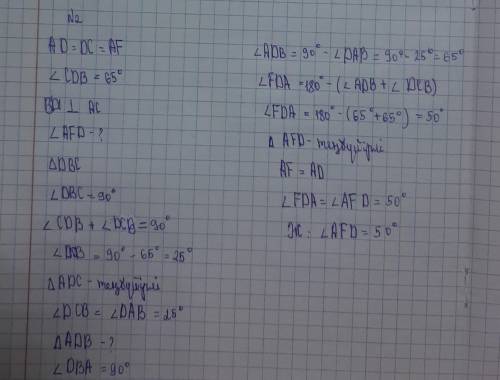 №2
AD = DC = AF
∠CDB = 65°
BD ⊥ AC
∠AFD - ?
△DBC
∠DBC = 90°
∠CDB + ∠DCB = 90°
∠DCB = 90° - 65° = 25°
△ADC - теңбүйірлі
∠DCB = ∠DAB = 25°
△ADB - ?
∠DBA = 90°
∠ADB = 90° - ∠DAB = 90° - 25° = 65°
∠FDA = 180° - (∠ADB + ∠DCB)
∠FDA = 180° - (65° + 65°) = 50°
△ AFD - теңбүйірлі
AF = AD
∠FDA = ∠AFD = 50°
Ж: ∠AFD = 50°